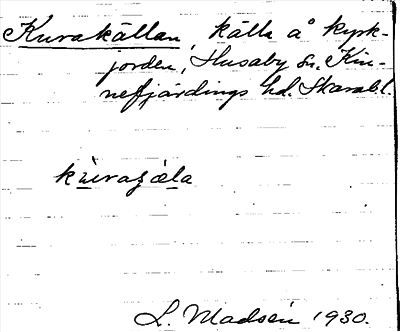 Kurakällan, källa å kyrk-
jorden, Husaby sn. Kin-
nefjärdings hd. Skarab. l.
L. Madsén 1930.